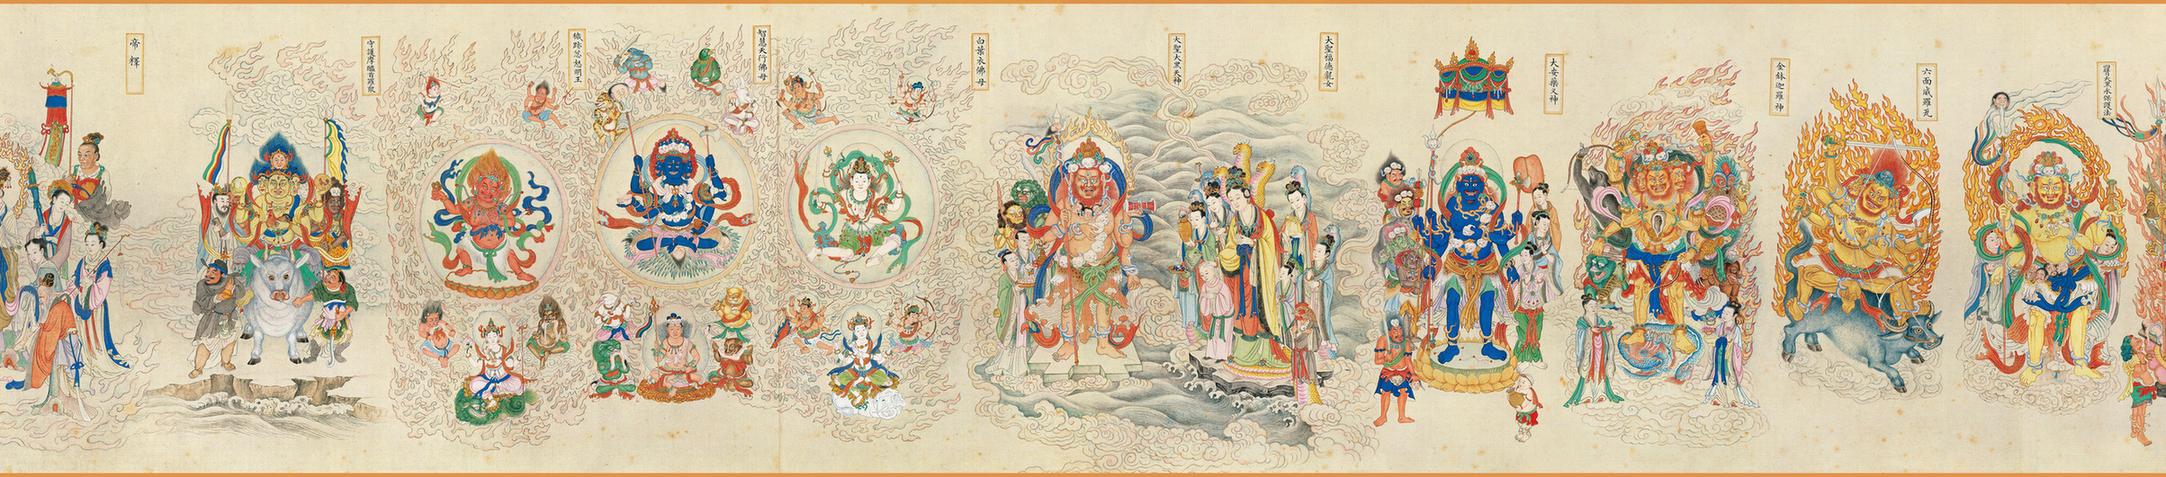 大黑永保護法
六面威羅瓦
金鉢迦羅神
大安藥叉神
大聖福德龍女
大聖大黑天神
白葉衣佛母
智慧天行佛母
穢跡忿怒明王
守護摩醯首羅眾
帝釋